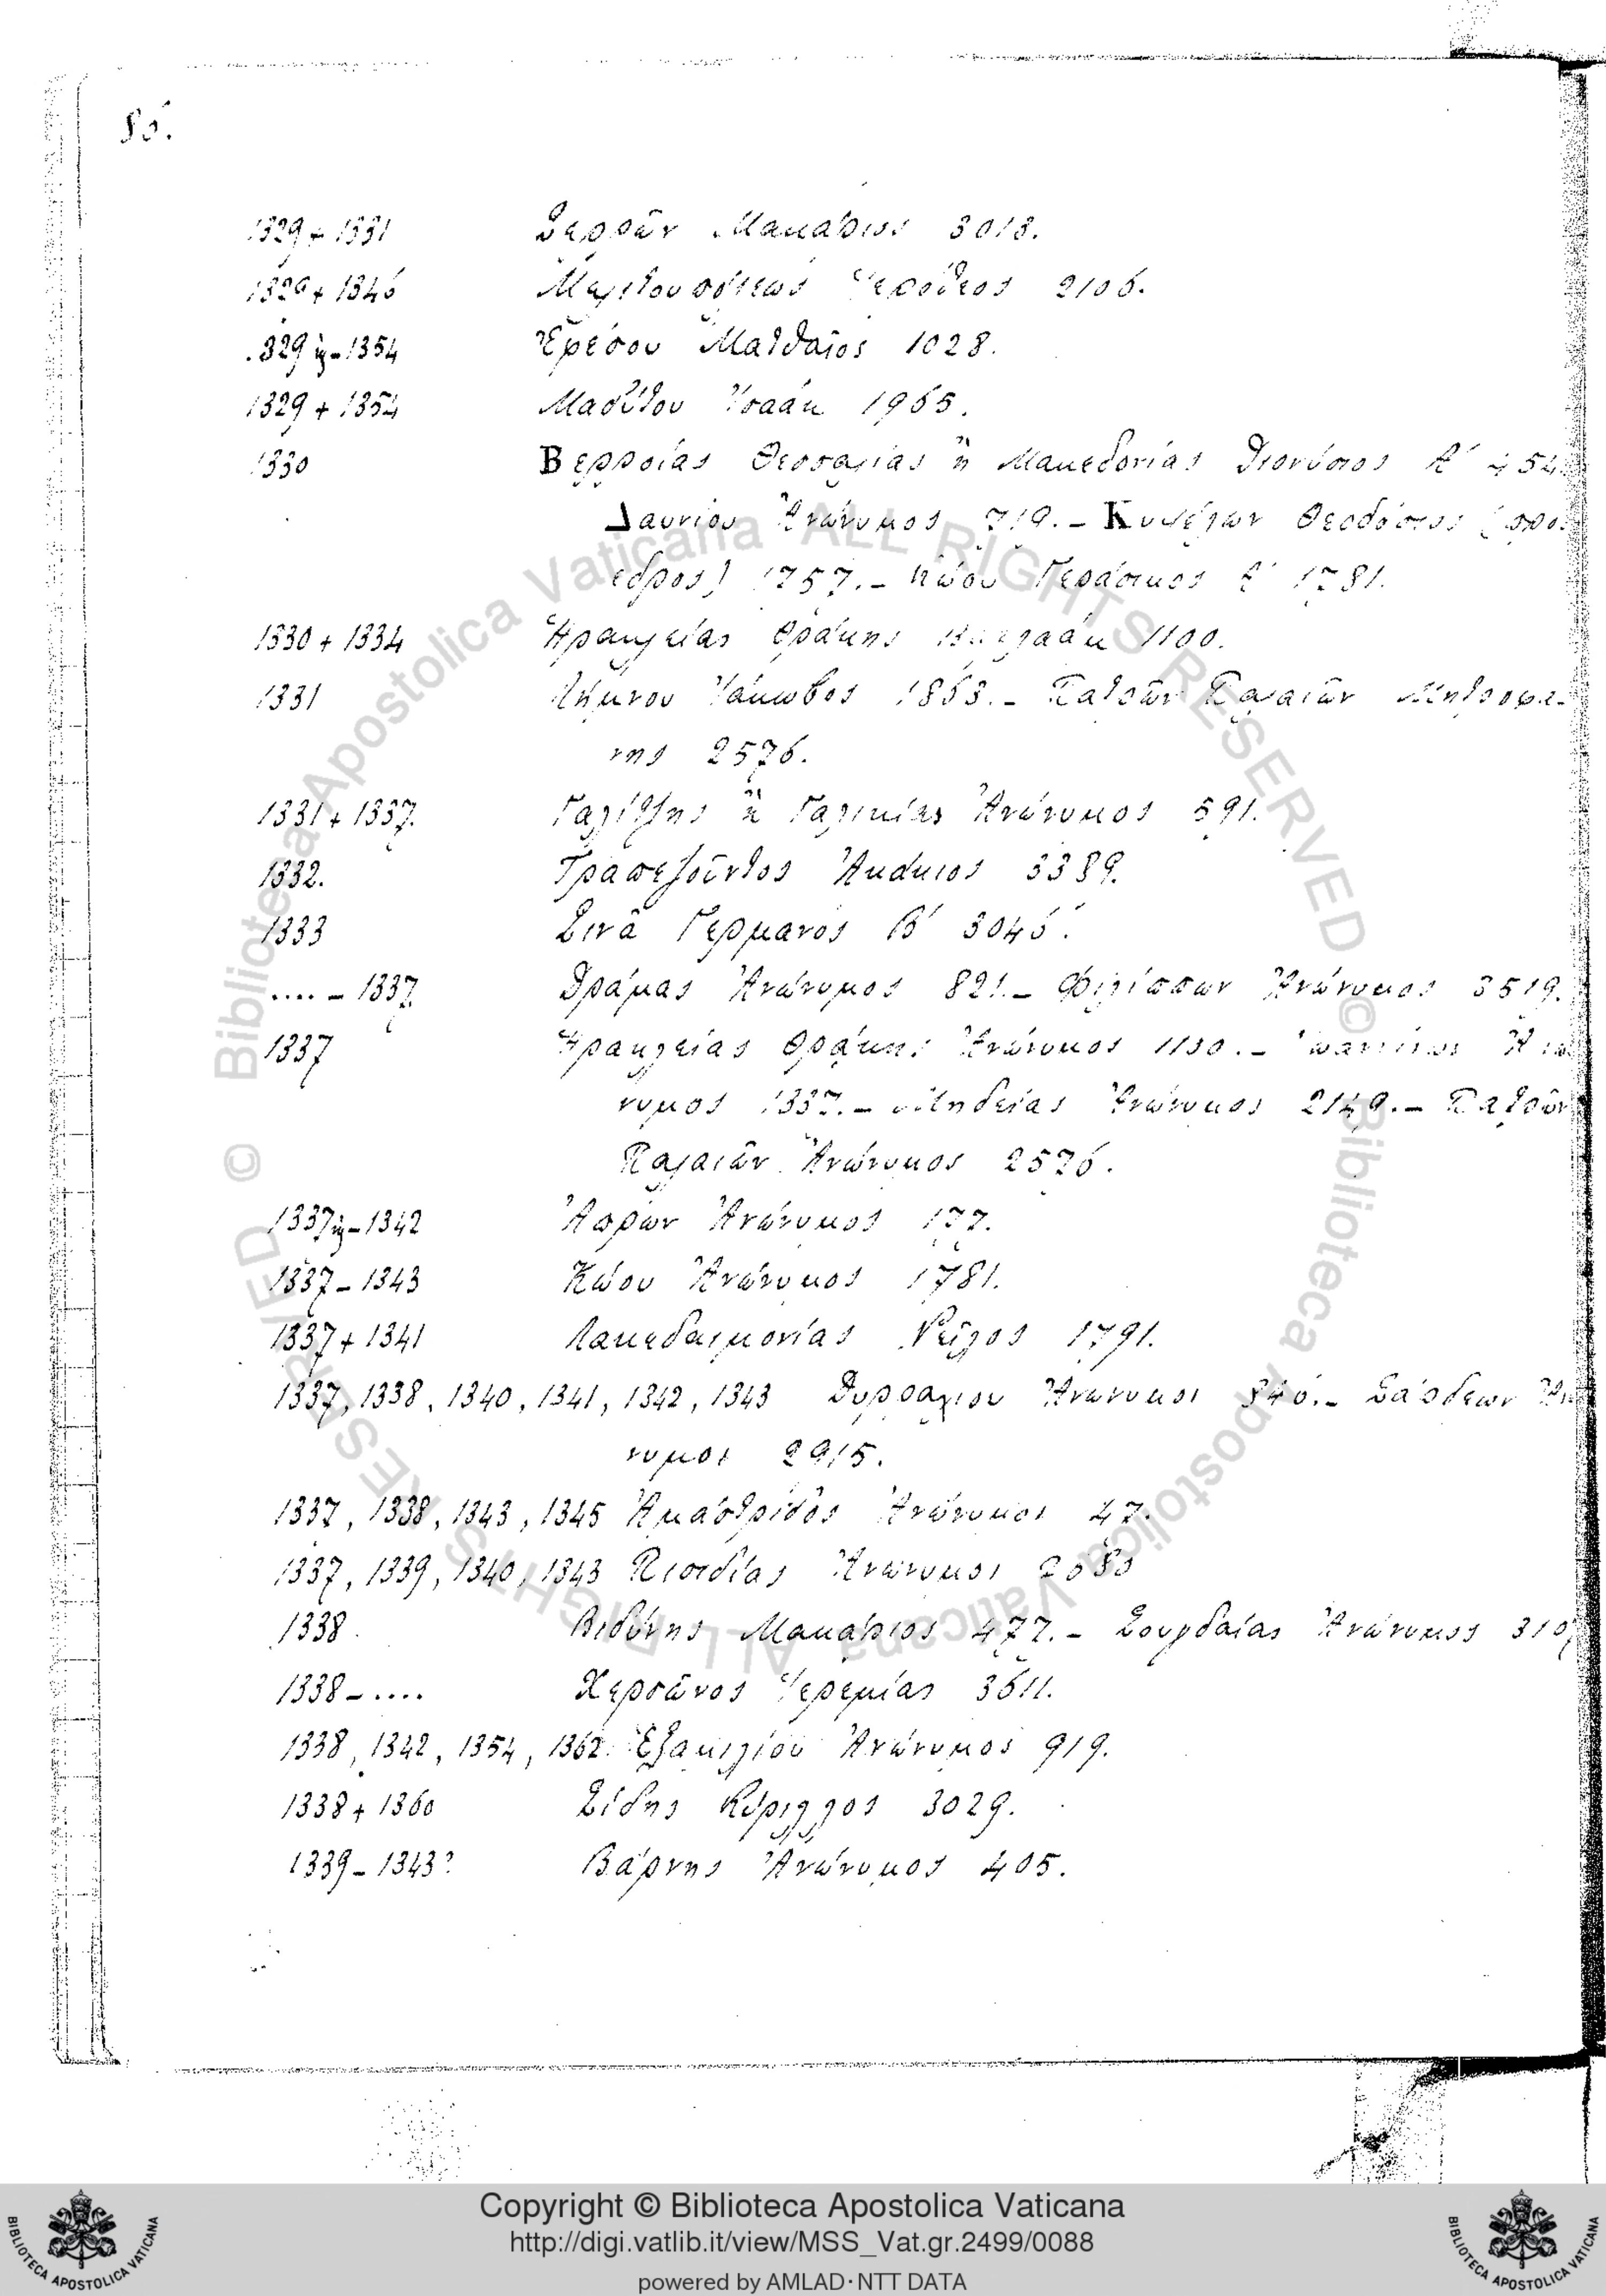 1329 + 1331 Σερρῶν Μακάριος 3013.
1329 + 1346 Μεγιστουπόλεως Ἱερόθεος 2106.
1329 ἢ - 1354 Ἐφέσου Ματθαῖος 1028.
1329 + 1354 Μαδύτου Ἰσαάκ 1965.
1330 Βερροίας Θεσσαλίας ἢ Μακεδονίας Διονύσιος Α΄ 454
Δαυνίου Ἀνώνυμος 719. – Κυψέλων Θεοδόσιος (πρό-
εδρος) 1757. – Κώου Γεράσιμος Α΄ 1781.
1330 + 1334 Ἡρακλείας Θράκης 1100.
1331 Λήμνου Ἰάκωβος 1863. – Πατρῶν Παλαιῶν Μητροφά-
νης 2576.
1331 + 1337. Γαλίτζης ἢ Γαλικίας Ἀνώνυμος 591.
1332. Τραπεζοῦντος Ἀκάκιος 3389.
1333 Σινᾶ Γερμανός Β΄ 3045.
.... – 1337 Δράμας Ἀνώνυμος 821. – Φιλίππων Ἀνώνυμος 3519.
1337 Ἡρακλείας Θράκης Ἀνώνυμος 1100. – Ἰωαννίνων Ἀνώ
νυμος 1337. – Μηδείας Ἀνώνυμος 2149. – Πατρῶν
Παλαιῶν Ἀνώνυμος 2576.
1337 ἢ – 1342 Ἄπρων Ἀνώνυμος 177.
1337 – 1343 Κώου Ἀνώνυμος 1781.
1337 + 1341 Λακεδαιμονίας Νεῖλος 1791.
1337, 1338, 1340, 1341, 1342, 1343 Δυρραχίου Ἀνώνυμος 846. – Σάρδεων Ἀνώ
νυμος 2915.
1337, 1338, 1343, 1345 Ἀμάστριδος Ἀνώνυμος 47.
1337, 1339, 1340, 1343 Πισιδίας Ἀνώνυμος
1338 Βιδύνης Μακάριος 477. – Σουγδαίας Ἀνώνυμος
1338 – .... Χερσῶνος Ἱερεμίας 3611.
1338, 1342, 1354, 1362. Ἐξαμιλίου Ἀνώνυμος 919.
1338 + 1360 Σίδης Κύριλλος 3029.
1339 – 1343? Βάρνης Ἀνώνυμος 405.
© Biblioteca Apostolica Vaticana ALL RIGHTS RESERVED © Biblioteca Apostolica Vaticana ALL RIGHTS RESERVED
Copyright © Biblioteca Apostolica Vaticana
http://digi.vatlib.it/view/MSS_Vat.gr.2499/0088
powered by AMLAD·NTT DATA
BIBLIOTECA APOSTOLICA VATICANA
BIBLIOTECA APOSTOLICA VATICANA